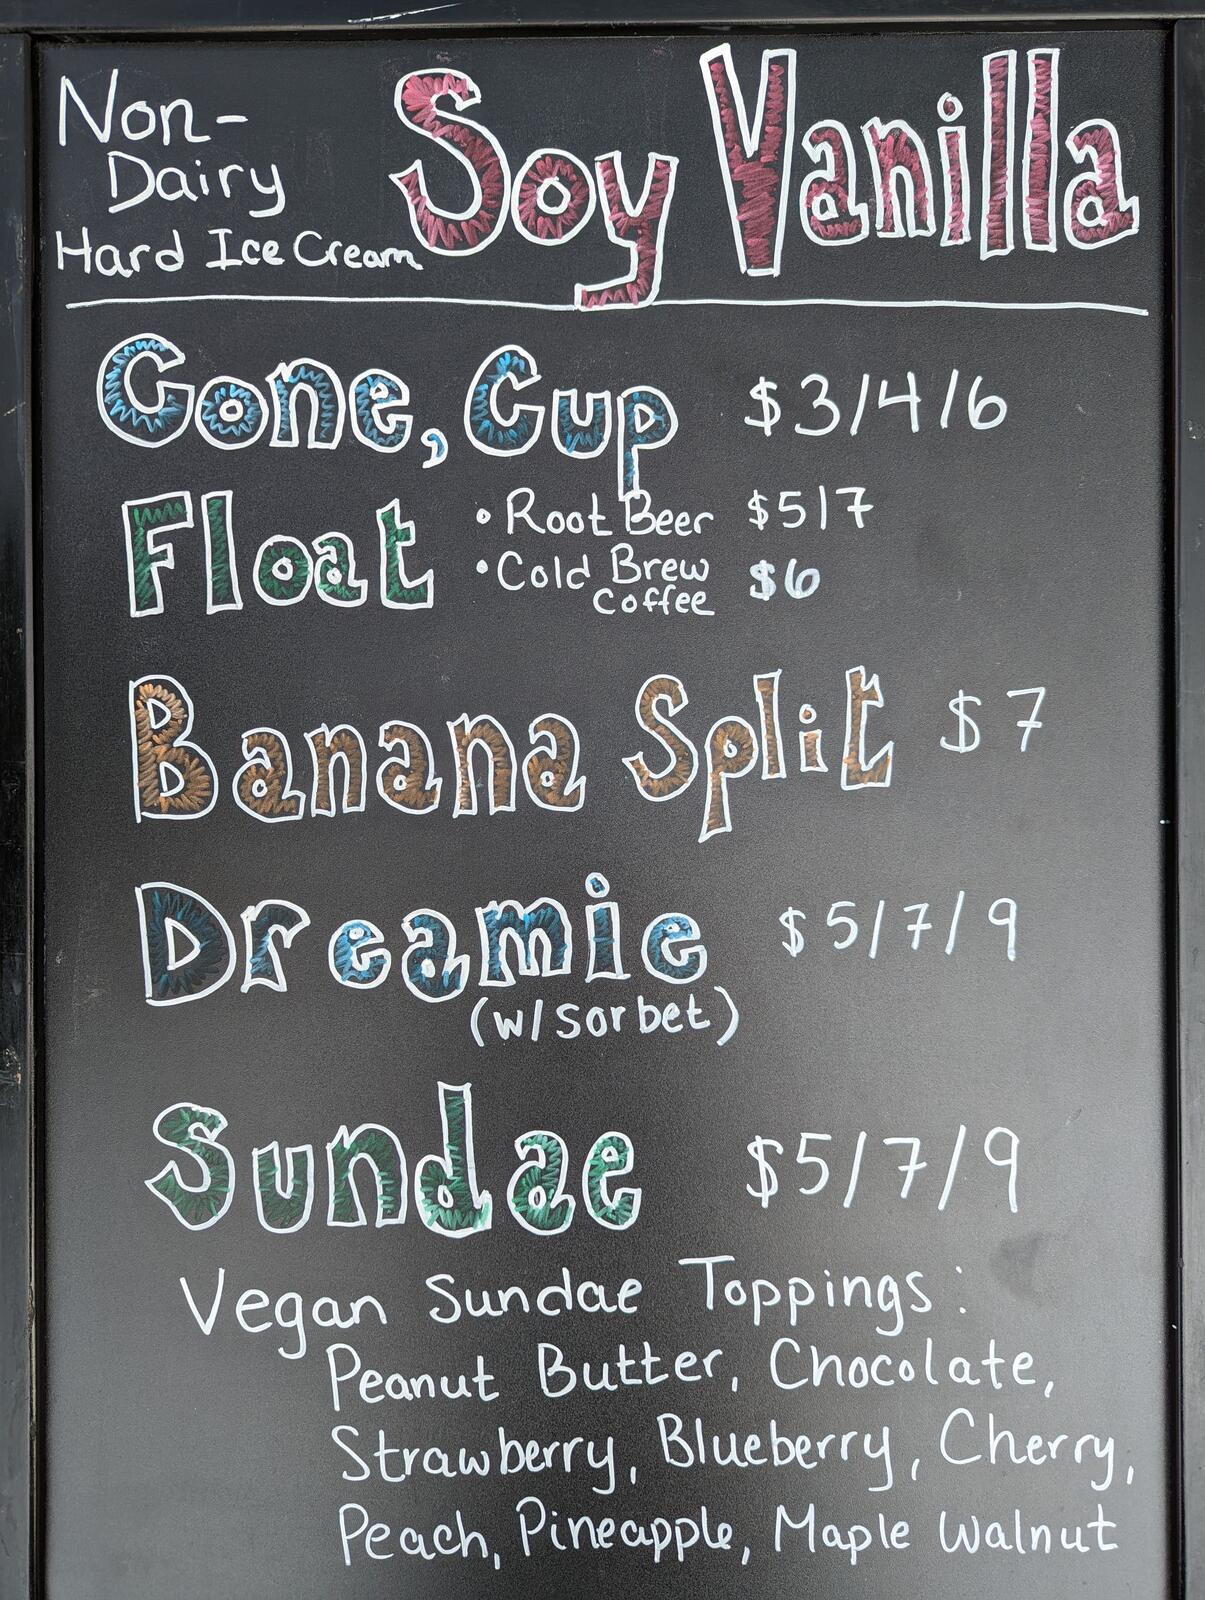 Non-
Dairy
Hard Ice Cream
Soy Vanilla
Cone, Cup $3/4/6
Float • Root Beer $5/7
• Cold Brew $6
Coffee
Banana Split $7
Dreamie $5/7/9
(w/ sorbet)
Sundae $5/7/9
Vegan Sundae Toppings:
Peanut Butter, Chocolate,
Strawberry, Blueberry, Cherry,
Peach, Pineapple, Maple Walnut